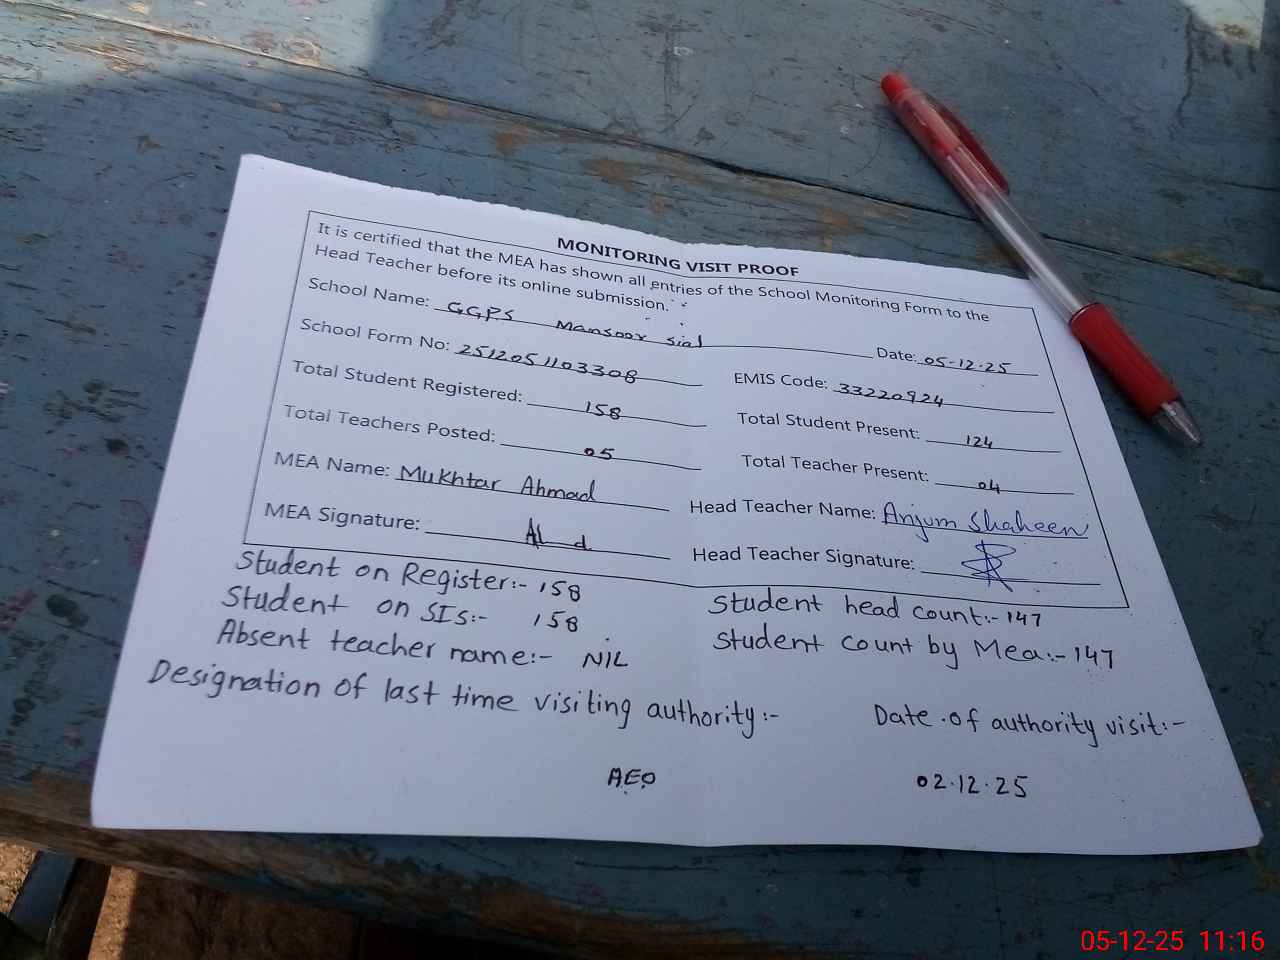 MONITORING VISIT PROOF
It is certified that the MEA has shown all entries of the School Monitoring Form to the
Head Teacher before its online submission.
School Name: GGPS Mansoor Sial Date: 05-12-25
School Form No: 2512051103308 EMIS Code: 33220924
Total Student Registered: 158 Total Student Present: 124
Total Teachers Posted: 05 Total Teacher Present: 04
MEA Name: Mukhtar Ahmad Head Teacher Name: Anjum Shaheen
MEA Signature: Head Teacher Signature:
Student on Register:- 158 Student head count:- 147
Student on SIS:- 158 Student count by Mea:- 147
Absent teacher name:- NIL
Designation of last time visiting authority:- Date of authority visit:-
AEO 02.12.25
05-12-25 11:16